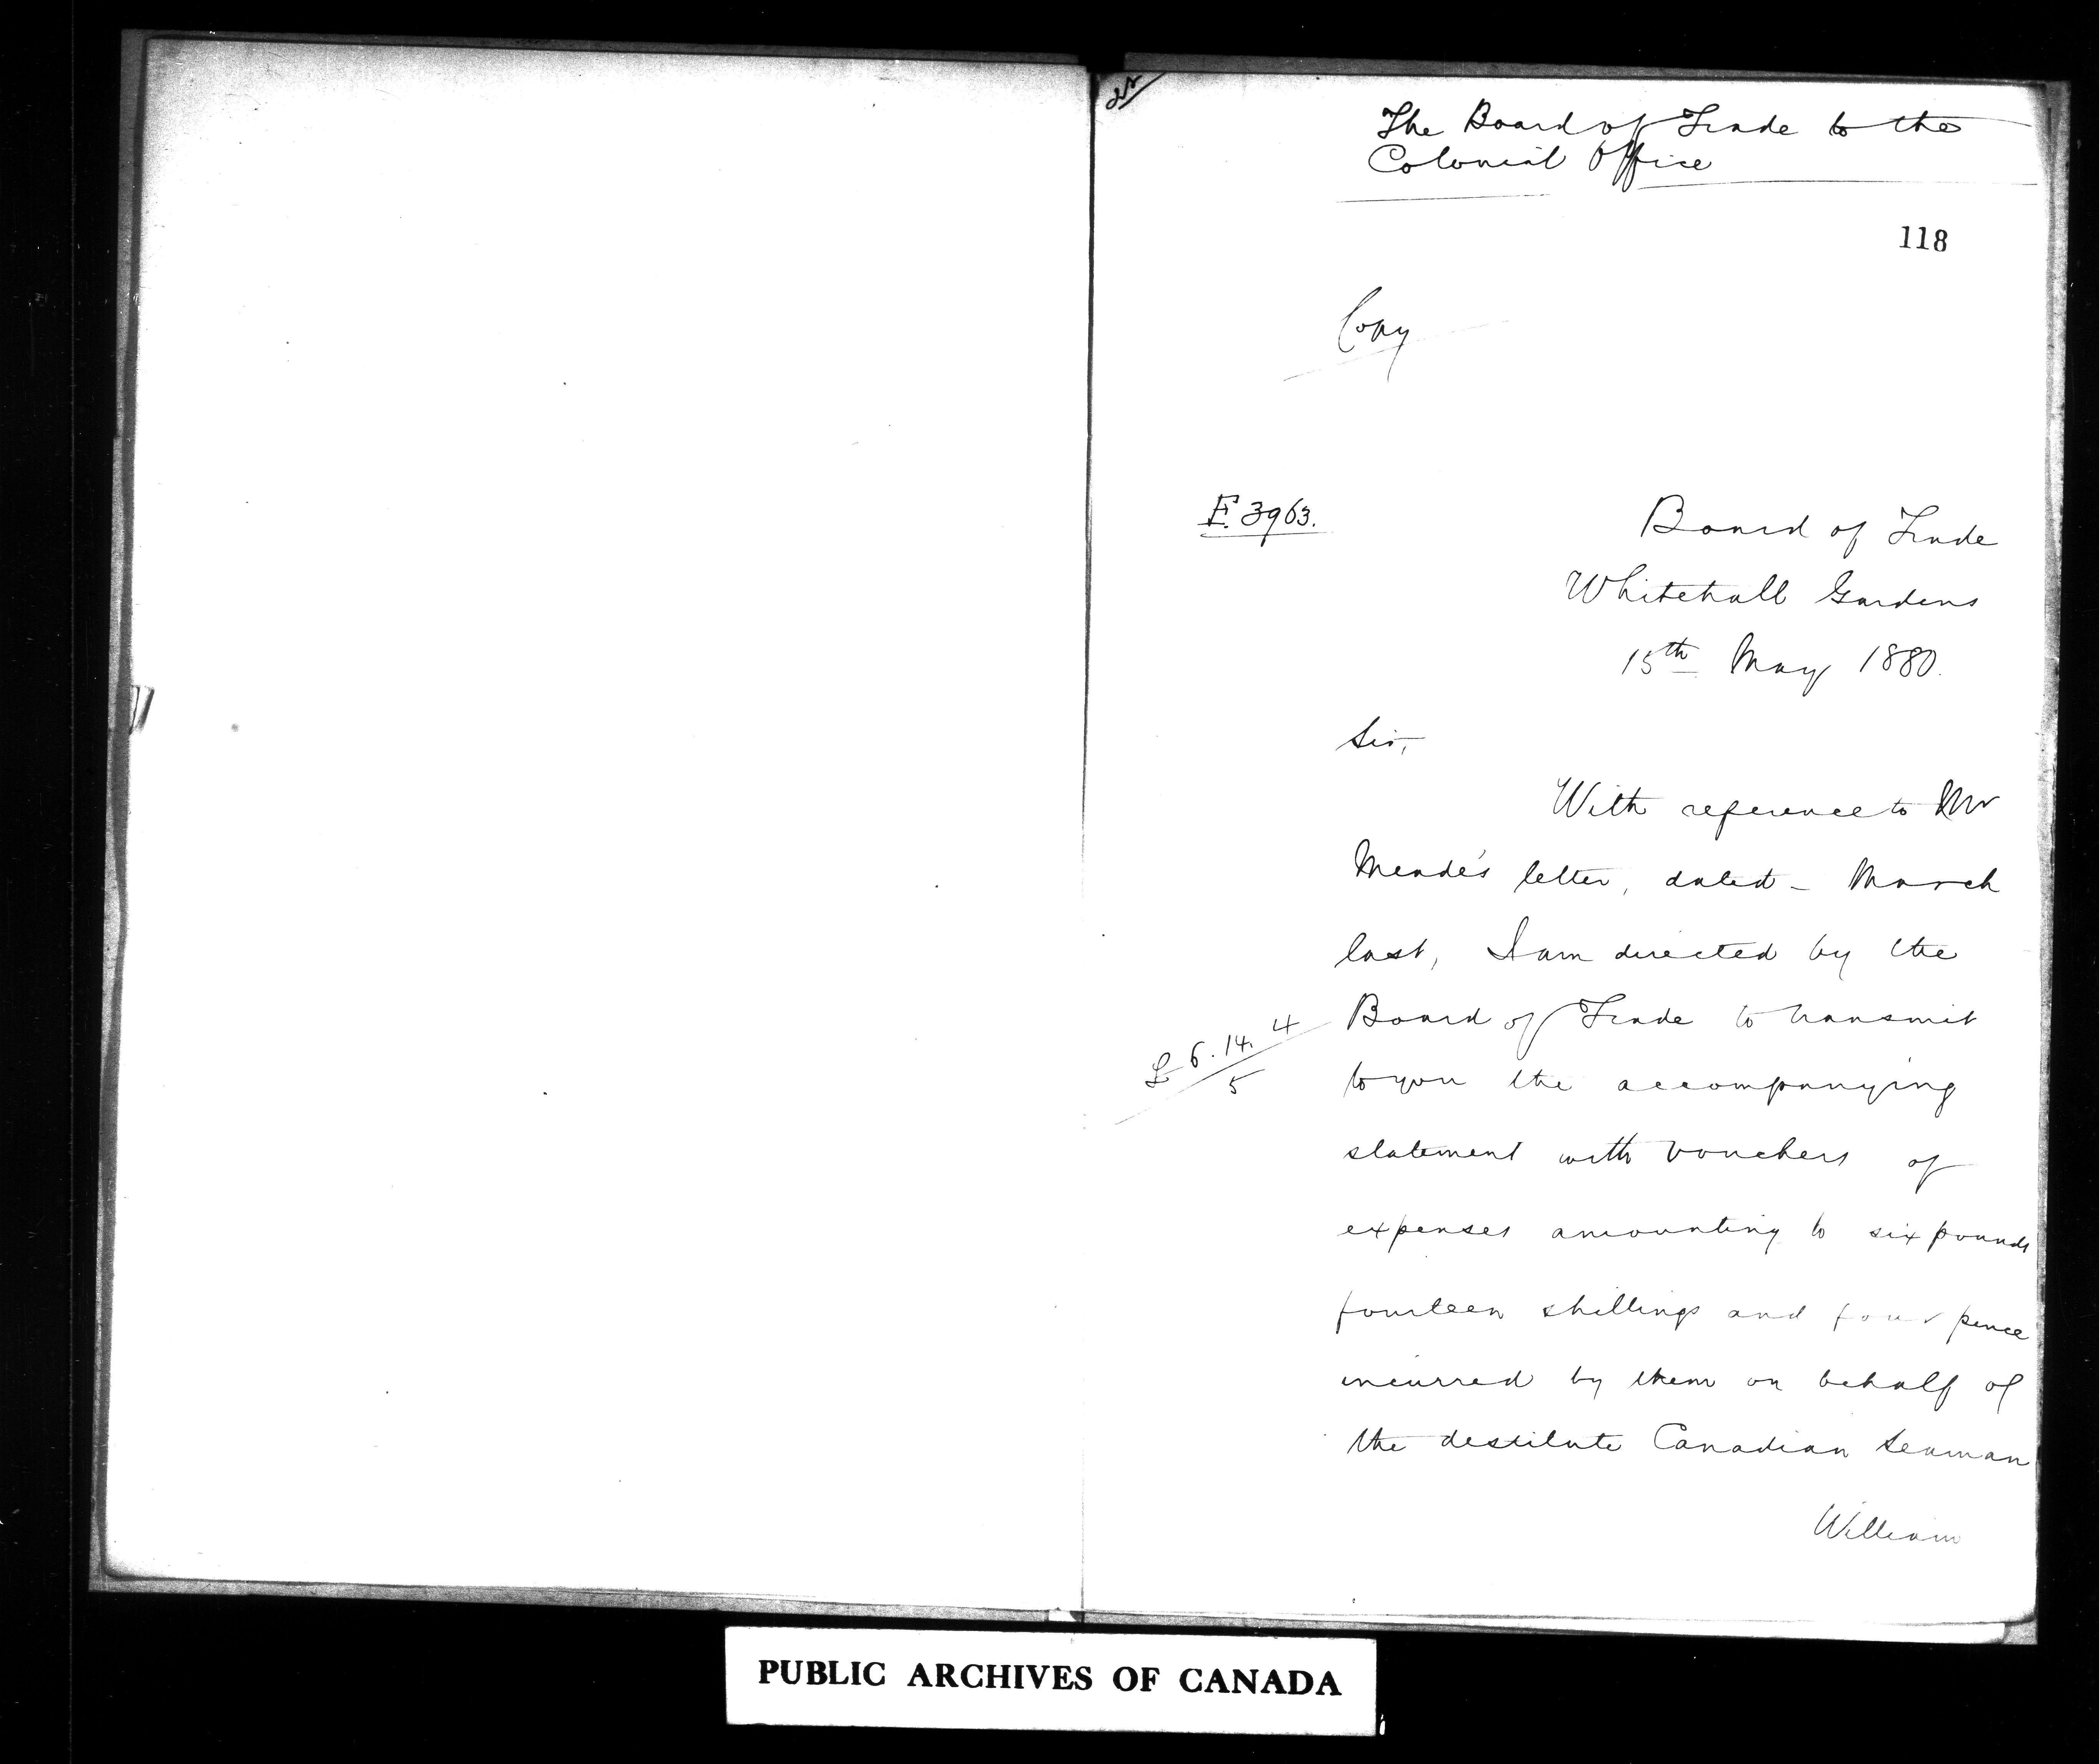 The Board of Trade to the
Colonial Office
118
Copy
F. 3963.
Board of Trade
Whitehall Gardens
15th May 1880.
Sir,
With reference to Mr
Meade's letter, dated - March
last, I am directed by the
Board of Trade to transmit
£6.14.4
5
to you the accompanying
statement with vouchers of
expenses amounting to six pounds
fourteen shillings and four pence
incurred by them on behalf of
the destitute Canadian Seaman
William
PUBLIC ARCHIVES OF CANADA